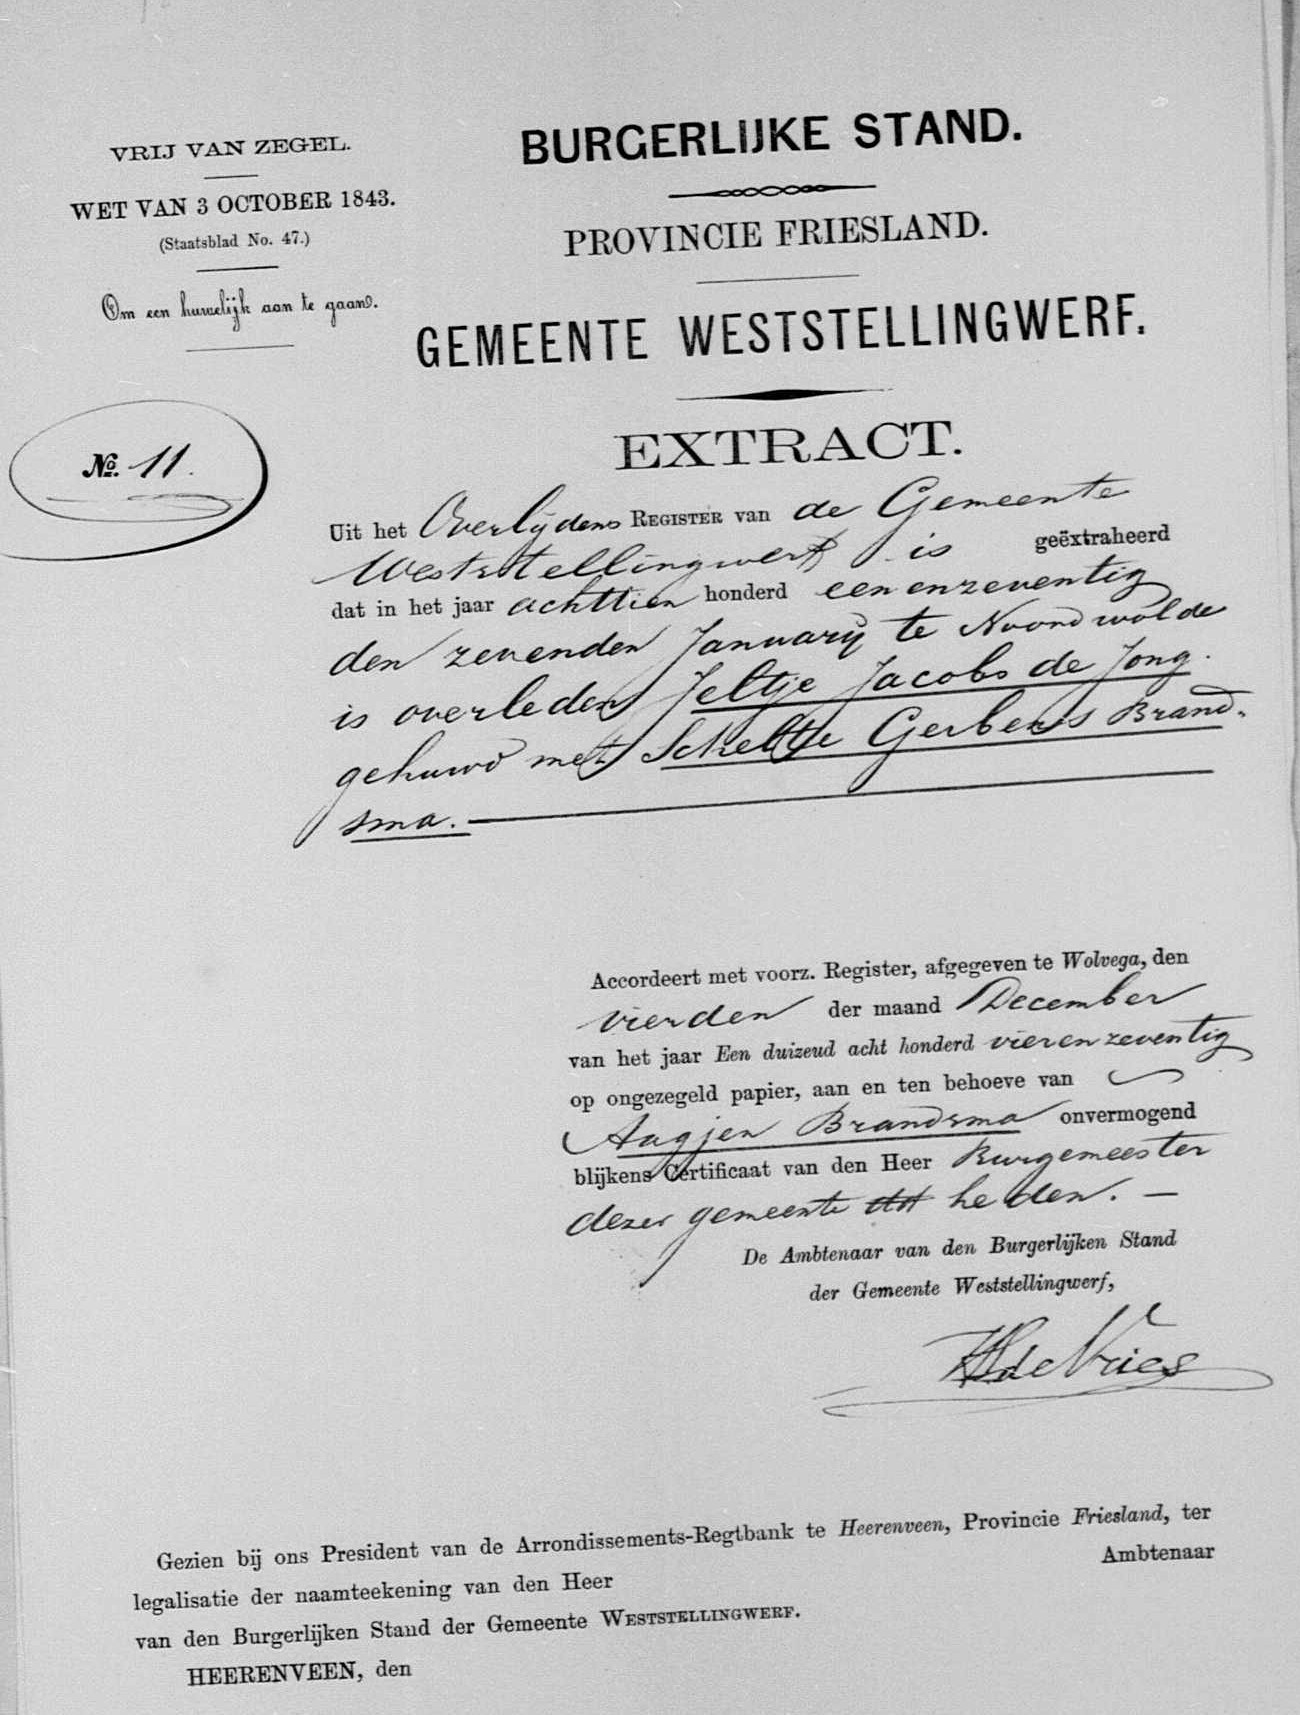 VRIJ VAN ZEGEL.
WET VAN 3 OCTOBER 1843.
(Staatsblad No. 47.)
Om een huwelijk aan te gaan.
No. 11.
BURGERLIJKE STAND.
PROVINCIE FRIESLAND.
GEMEENTE WESTSTELLINGWERF.
EXTRACT.
Uit het Overlijdens REGISTER van de Gemeente
Weststellingwerf is geëxtraheerd
dat in het jaar achttien honderd een en zeventig
den zevenden January te Noordwolde
is overleden Jeltje Jacobs de Jong.
gehuwd met Scheltje Gerbens Brand-
sma.
Accordeert met voorz. Register, afgegeven te Wolvega, den
vierden der maand December
van het jaar Een duizend acht honderd vier en zeventig
op ongezegeld papier, aan en ten behoeve van
Aagjen Brandsma onvermogend
blijkens Certificaat van den Heer Burgemeester
dezer gemeente heden.
De Ambtenaar van den Burgerlijken Stand
der Gemeente Weststellingwerf,
de Vries
Gezien bij ons President van de Arrondissements-Regtbank te Heerenveen, Provincie Friesland, ter
legalisatie der naamteekening van den Heer Ambtenaar
van den Burgerlijken Stand der Gemeente WESTSTELLINGWERF.
HEERENVEEN, den